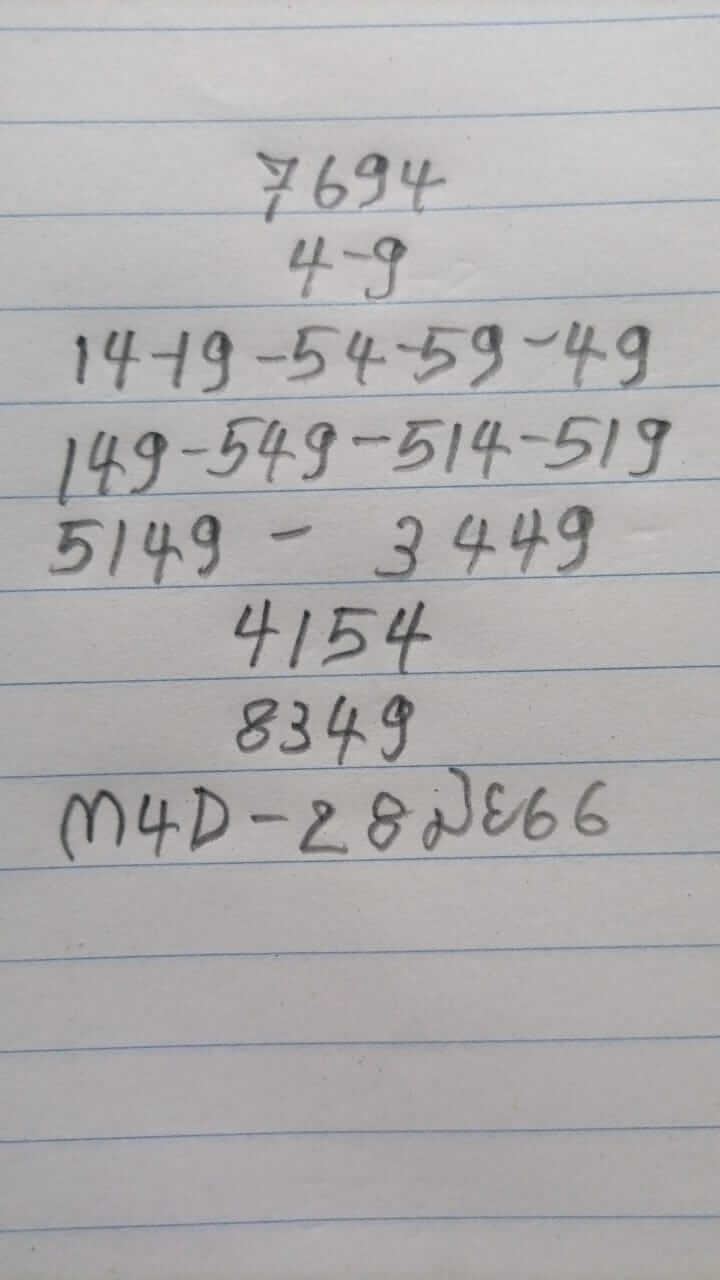 7694
4-9
14-19-54-59-49
149-549-514-519
5149 - 3449
4154
8349
M4D-28มิย66